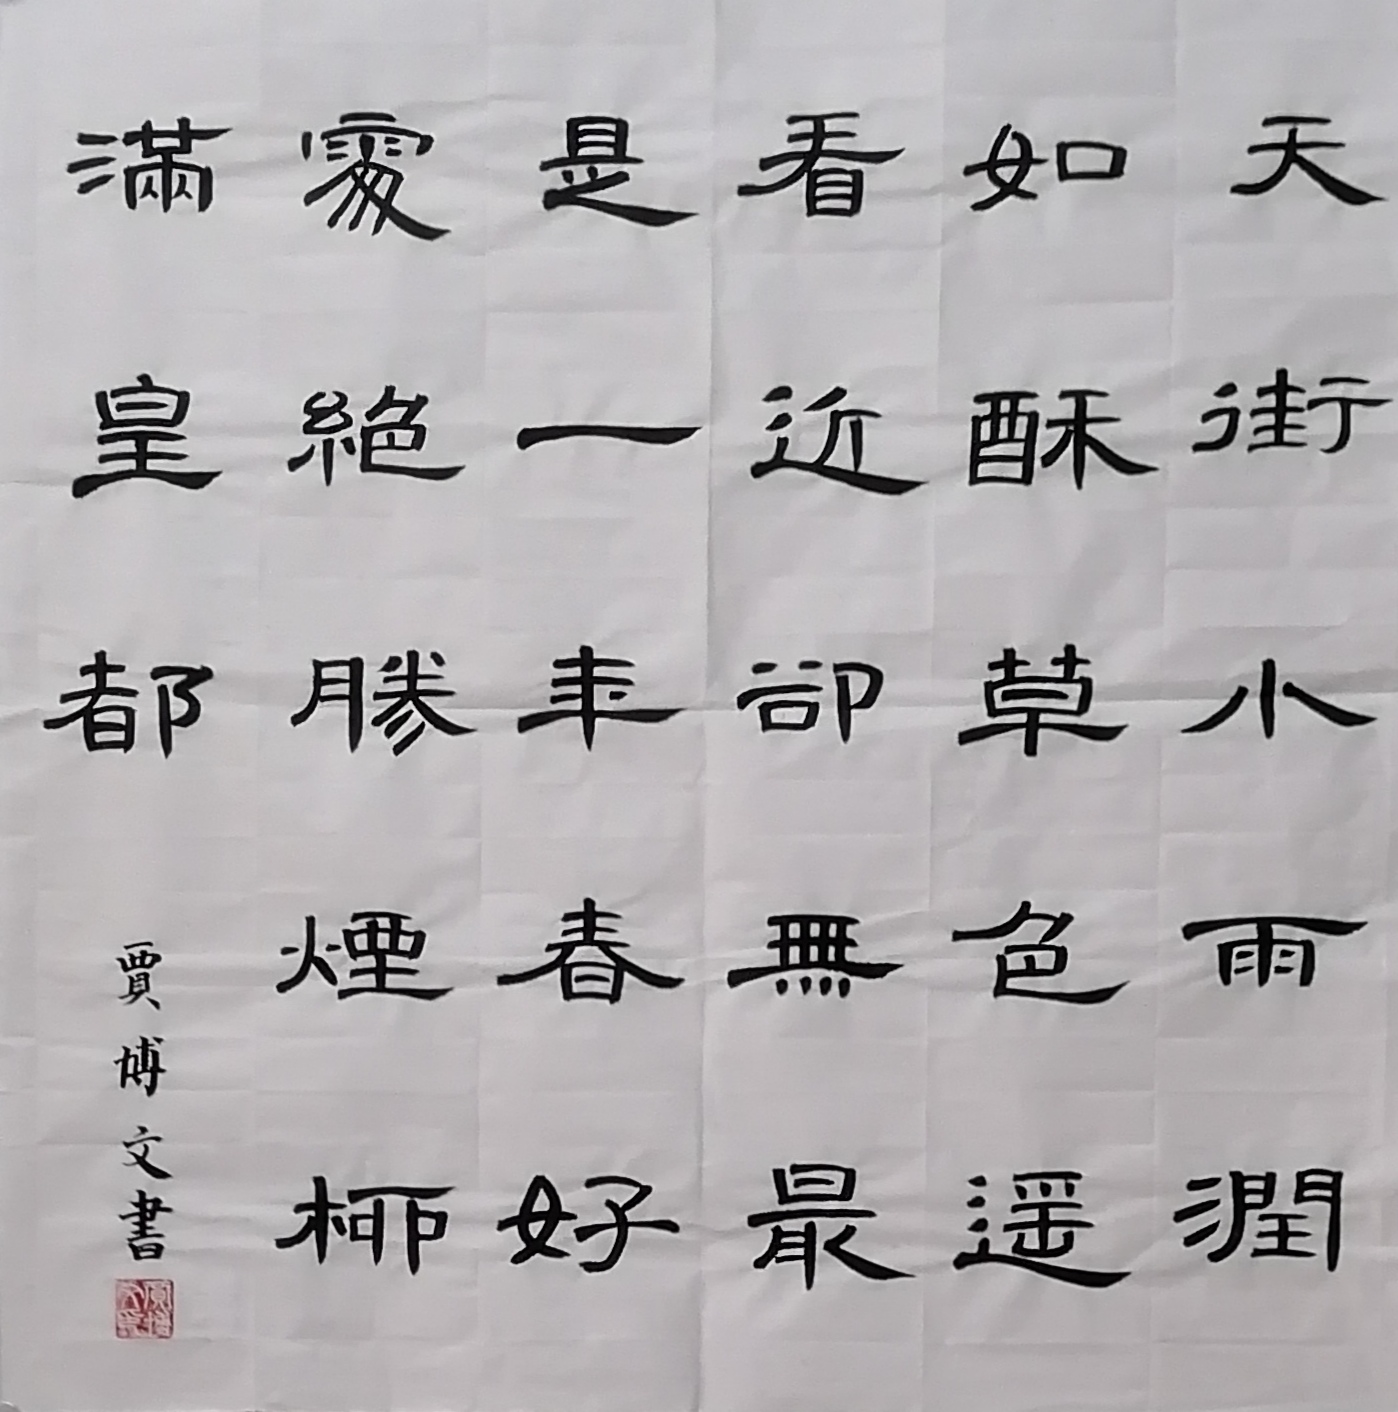 天街小雨潤
如酥草色遥
看近卻無最
是一年春好
處絕勝煙柳
滿皇都
賈博文書